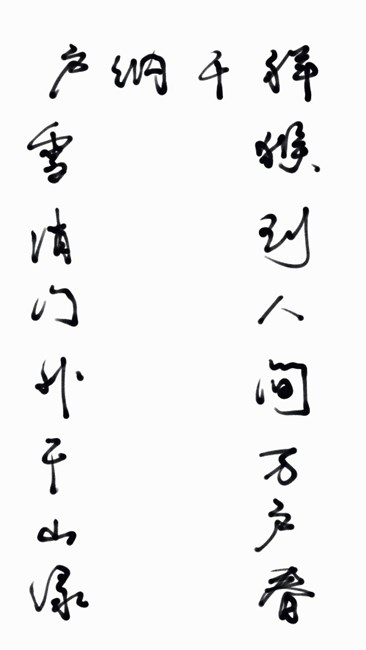 户纳千祥
雪消门外千山绿
猴到人间万户春